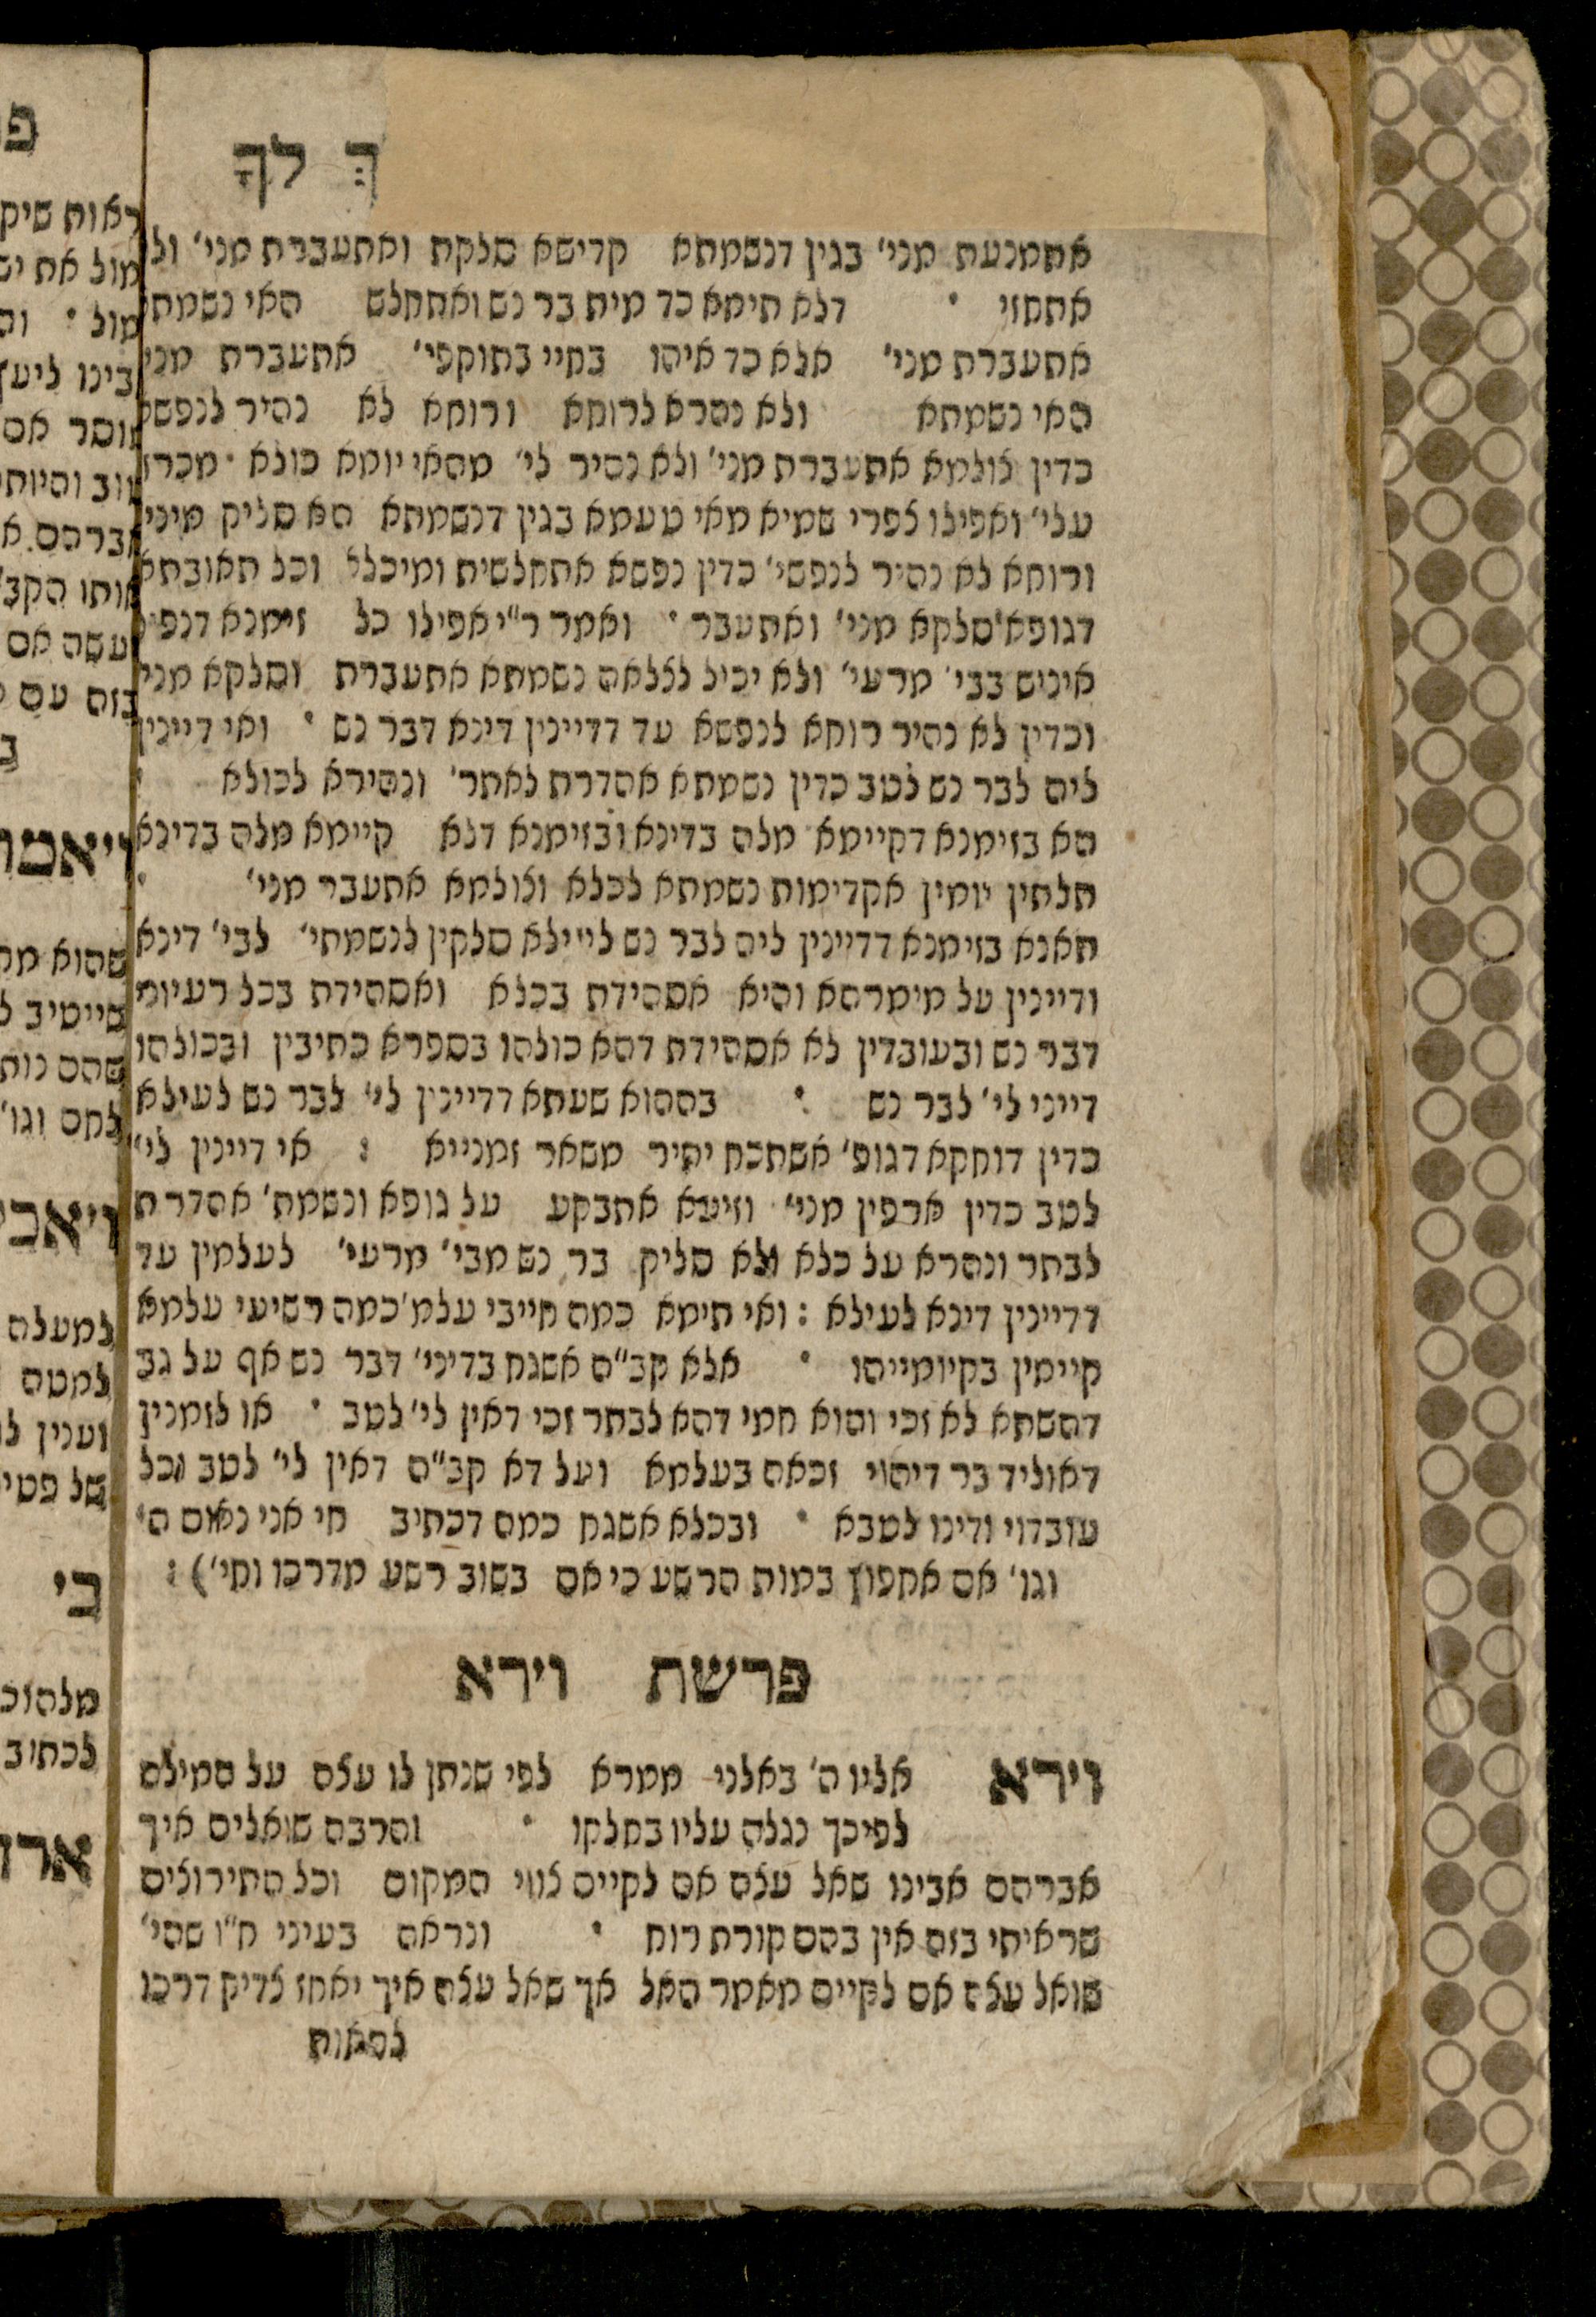 ךְ לךָ
אתמנעת מני' בגין דנשמתא קדישא סלקת ואתעברת מני' ולא
אתחזי • דלא תימא כד מית בר נש ואתחלש האי נשמתא
אתעברת מני' אלא כד איהו בחיי בתוקפי' אתעברת מני'
האי נשמתא ולא נהרא לרוחא ורוחא לא נהיר לנפשא
כדין צולמא אתעברת מני' ולא נהיר לי' מהאי יומא כולא מכרזי
עלי' ואפילו צפרי שמיא מאי טעמא בגין דנשמתא הא סליק מיני'
ורוחא לא נהיר לנפשי' כדין נפשא אתחלשית ומיכלא וכל תאובתא
דגופא סלקא מני' ואתעבר • ואמר ר"י אפילו כל זימנא דנפיל
איניש בבי' מרעי' ולא יכיל לצלאה נשמתא אתעברת וסלקא מני'
וכדין לא נהיר רוחא לנפשא עד דדיינין דינא דבר נש • ואי דיינין
ליה לבר נש לטב כדין נשמתא אהדרת לאתר' ונהירא לכולא
הא בזימנא דקיימא מלה בדינא ובזימנא דלא קיימא מלה בדינא
תלתין יומין אקדימות נשמתא לכלא וצולמא אתעבר מני' •
תאנא בזימנא דדיינין ליה לבר נש לעילא סלקין לנשמתי' לבי' דינא
ודיינין על מימרהא והיא אסהידת בכלא ואסהידת בכל רעיוני
דבר נש ובעובדין לא אסהידת דהא כולהו בספרא כתיבין ובכולהו
דייני לי' לבר נש • בההוא שעתא דדיינין לי' לבר נש לעילא
כדין דוחקא דגופ' אשתכח יתיר משאר זמנייא : אי דיינין לי'
לטב כדין ארפין מני' וזיעא אתבקע על גופא ונשמת' אהדרת
לבתר ונהרא על כלא ולא סליק בר נש מבי' מרעי' לעלמין עד
דדיינין דינא לעילא : ואי תימא כמה חייבי עלמ' כמה רשיעי עלמא
קיימין בקיומייהו • אלא קב"ה אשגח בדיני' דבר נש אף על גב
דהשתא לא זכי והוא חמי דהא לבתר זכי דאין לי' לטב • או לזמנין
דאוליד בר דיהוי זכאה בעלמא ועל דא קב"ה דאין לי' לטב וכל
עובדוי ודינו לטבא • ובכלא אשגח כמה דכתיב חי אני נאום ה'
וגו' אם אחפוץ במות הרשע כי אם בשוב רשע מדרכו וחי') :
פרשת וירא
וירא אליו ה' באלני ממרא לפי שנתן לו עצה על המילה
לפיכך נגלה עליו בחלקו • והרבה שואלים איך
אברהם אבינו שאל עצה אם לקיים צווי המקום וכל התירוצים
שראיתי בזה אין בהם קורת רוח • ונראה בעיני ח"ו שהי'
שואל עצה אם לקיים מאמר האל אך שאל עצה איך יאחז צדיק דרכו